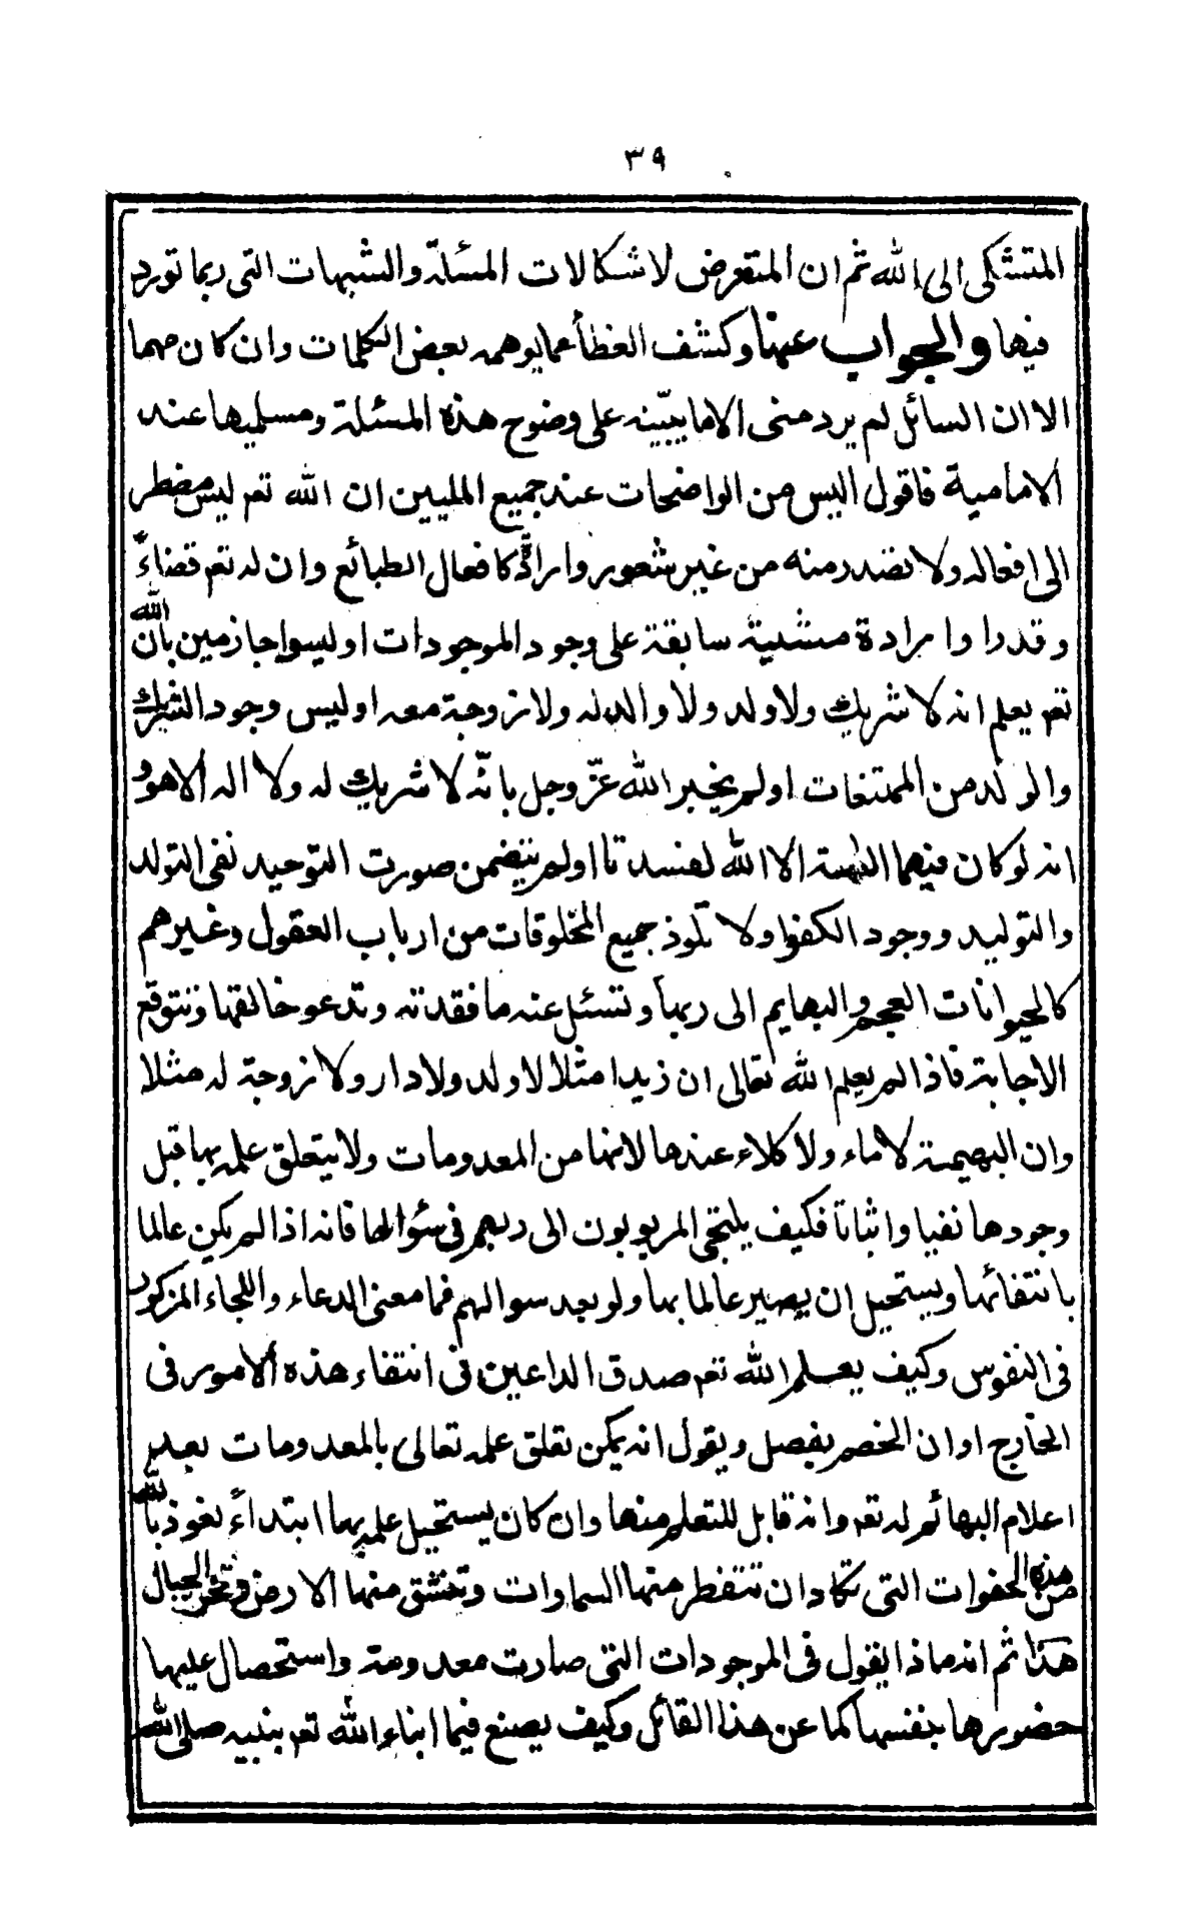 ٣٩
المتشكى الى الله ثم ان المتعرض لاشكالات المسئلة والشبهات التى ربما تورد
فيها والجواب عنها وكشف الغطأ عما يوهمه بعض الكلمات وان كان مهما
الا ان السائل لم يرد منى الا ما يبيّنه على وضوح هذه المسئلة ومسلميها عند
الامامية فاقول اليس من الواضحات عند جميع المليين ان الله تعم ليس مضطر
الى افعاله ولا تصدر منه من غير شعور وارادة كافعال الطبائع وان له تعم قضاءً
وقدرا وارادة مشية سابقة على وجود الموجودات او ليسوا جازمين بان الله
تعم يعلم انه لا شريك ولا ولد ولا والد له ولا زوجة معه او ليس وجود الشريك
والولد من الممتنعات اولم يخبر الله عزّ وجل بانّه لا شريك له ولا اله الا هو و
انه لو كان فيهما الهة الا الله لفسدتا اولم يتضمن صورت التوحيد نفى التولد
والتوليد ووجود الكفو اولا تلوذ جميع المخلوقات من ارباب العقول وغيرهم
كالحيوانات العجم والبهايم الى ربها وتسئل عنه ما فقدته وتدعو خالقها وتتوقع
الاجابة فاذا لم يعلم الله تعالى ان زيدا مثلا لا ولد ولا دار ولا زوجة له مثلا
وان البهيمة لا ماء ولا كلاء عندها لانها من المعدومات ولا يتعلق علمه بها قبل
وجودها نفيا واثباتا فكيف يلتجى المربوبون الى ربهم فى سئوالها فانه اذا لم يكن عالما
بانتفائها ويستحيل ان يصير عالما بها ولو بعد سوالهم فما معنى الدعاء واللجاء المزكور
فى النفوس وكيف يعلم الله تعم صدق الداعين فى انتفاء هذه الامور فى
الخارج او ان الخصم يفصل ويقول انه يمكن تعلق علمه تعالى بالمعدومات بعد
اعلام البهائم له تعم وانه قابل للتعلم منها وان كان يستحيل علمه بها ابتداءً نعوذ بالله
من هذه الهفوات التى تكاد ان تتفطر منها السماوات وتنشق منها الارض وتخر الجبال
هذا ثم انه ماذا يقول فى الموجودات التى صارت معدومة واستحصال عليها
حضورها بنفسها كما عن هذا القائل وكيف يصنع فيما انباء الله تعم بنبيه صلى الله